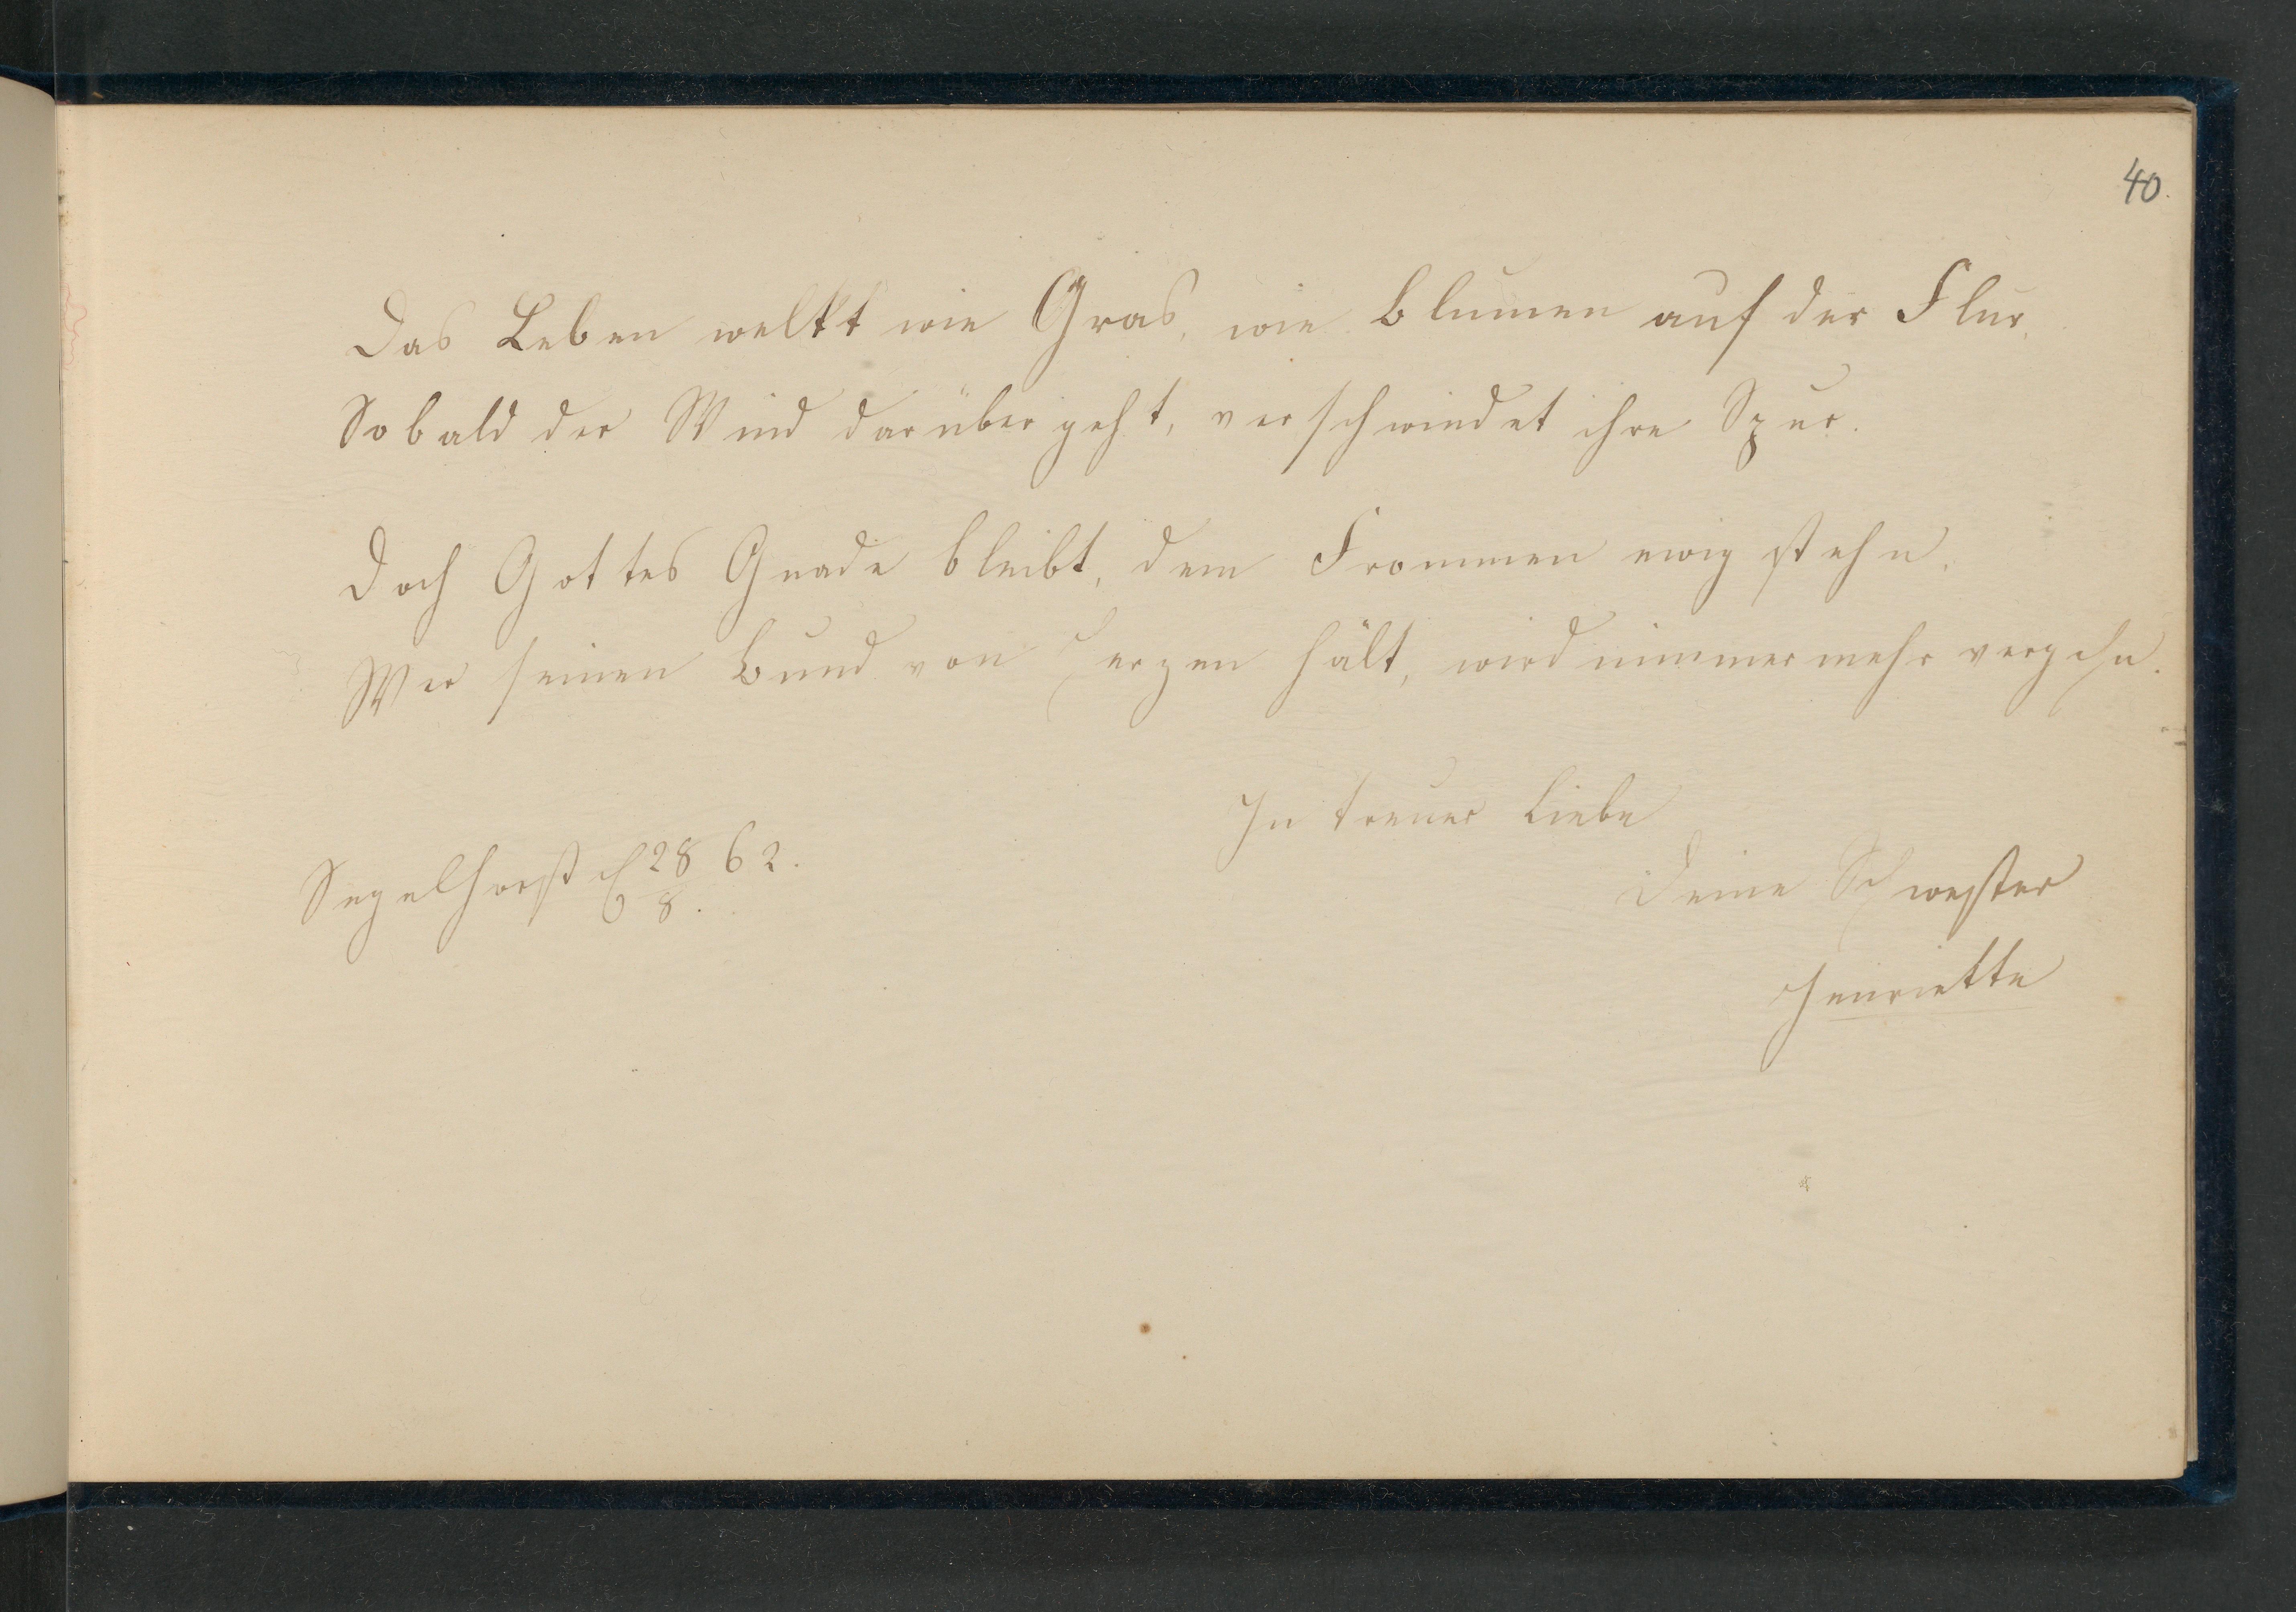 40.
Das Leben welkt wie Gras, wie Blumen auf der Flur,
Sobald der Wind darüber geht, verschwindet ihre Spur.
Doch Gottes Gnade bleibt, dem Frommen ewig stehn,
Wer seinen Bund von Herzen hält, wird nimmermehr vergehn.
In treuer Liebe
Segelhorst d 28/8. 62.
Deine Schwester
Henriette